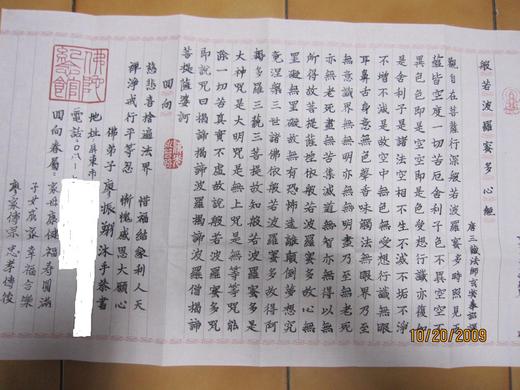 般若波羅蜜多心經
唐三藏法師玄奘奉詔譯
觀自在菩薩行深般若波羅蜜多時照見五
蘊皆空度一切苦厄舍利子色不異空空不
異色色即是空空即是色受想行識亦復如
是舍利子是諸法空相不生不滅不垢不淨
不增不減是故空中無色無受想行識無眼
耳鼻舌身意無色聲香味觸法無眼界乃至
無意識界無無明亦無無明盡乃至無老死
亦無老死盡無苦集滅道無智亦無得以無
所得故菩提薩埵依般若波羅蜜多故心無
罣礙無罣礙故無有恐怖遠離顛倒夢想究
竟涅槃三世諸佛依般若波羅蜜多故得阿
耨多羅三藐三菩提故知般若波羅蜜多是
大神咒是大明咒是無上咒是無等等咒能
除一切苦真實不虛故說般若波羅蜜多咒
即說咒曰揭諦揭諦波羅揭諦波羅僧揭諦
菩提薩婆訶
回向
慈悲喜捨遍法界 惜福結緣利人天
禪淨戒行平等忍 慚愧感恩大願心
佛弟子廖振翔沐手恭書
地址:屏東市
電話:08-
回向眷屬:家母康健福壽圓滿
子女成家幸福吉樂
廖家傳宗忠孝傳後
佛陀紀念館
10/20/2009